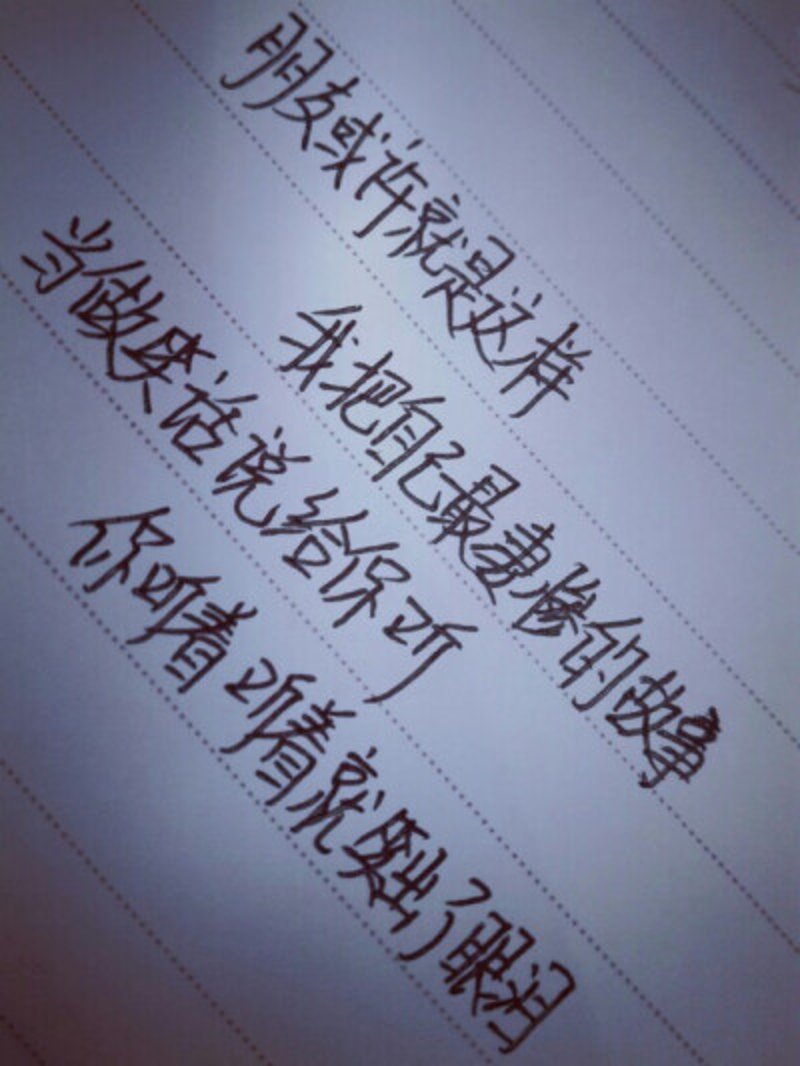 朋友或许就是这样
我把自己最凄惨的故事
当做笑话说给你听
你听着听着就笑出了眼泪